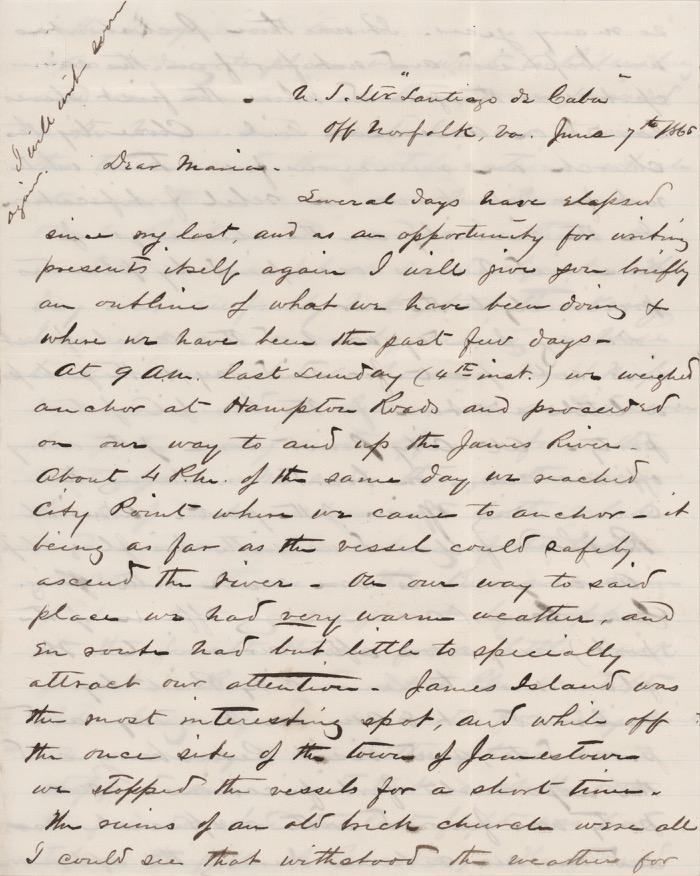 I will write soon
again.
U. S. Str "Santiago de Cuba"
Off Norfolk, Va. June 7th 1865
Dear Maria.
Several days have elapsed
since my last, and as an opportunity for writing
presents itself again I will give you briefly
an outline of what we have been doing &
where we have been the past few days -
At 9 A.M. last Sunday (4th inst.) we weighed
anchor at Hampton Roads and proceeded
on our way to and up the James River.
About 4 P.M. of the same day we reached
City Point where we came to anchor - it
being as far as the vessel could safely
ascend the river - On our way to said
place we had very warm weather, and
En route had but little to specially
attract our attention. James Island was
the most interesting spot, and while off
the once site of the town of Jamestown
we stopped the vessels for a short time.
The ruins of an old brick church were all
I could see that withstood the weather for